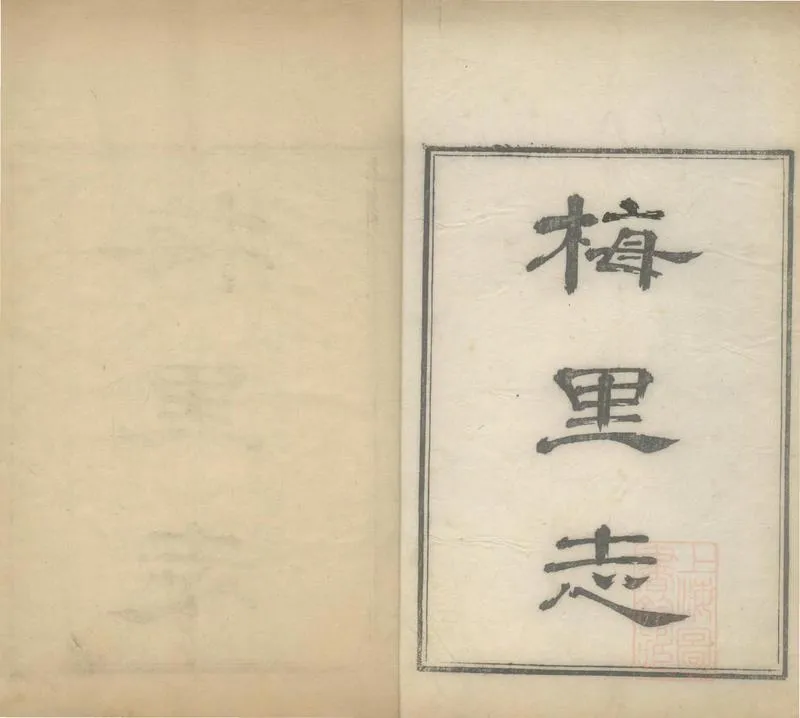 梅里志